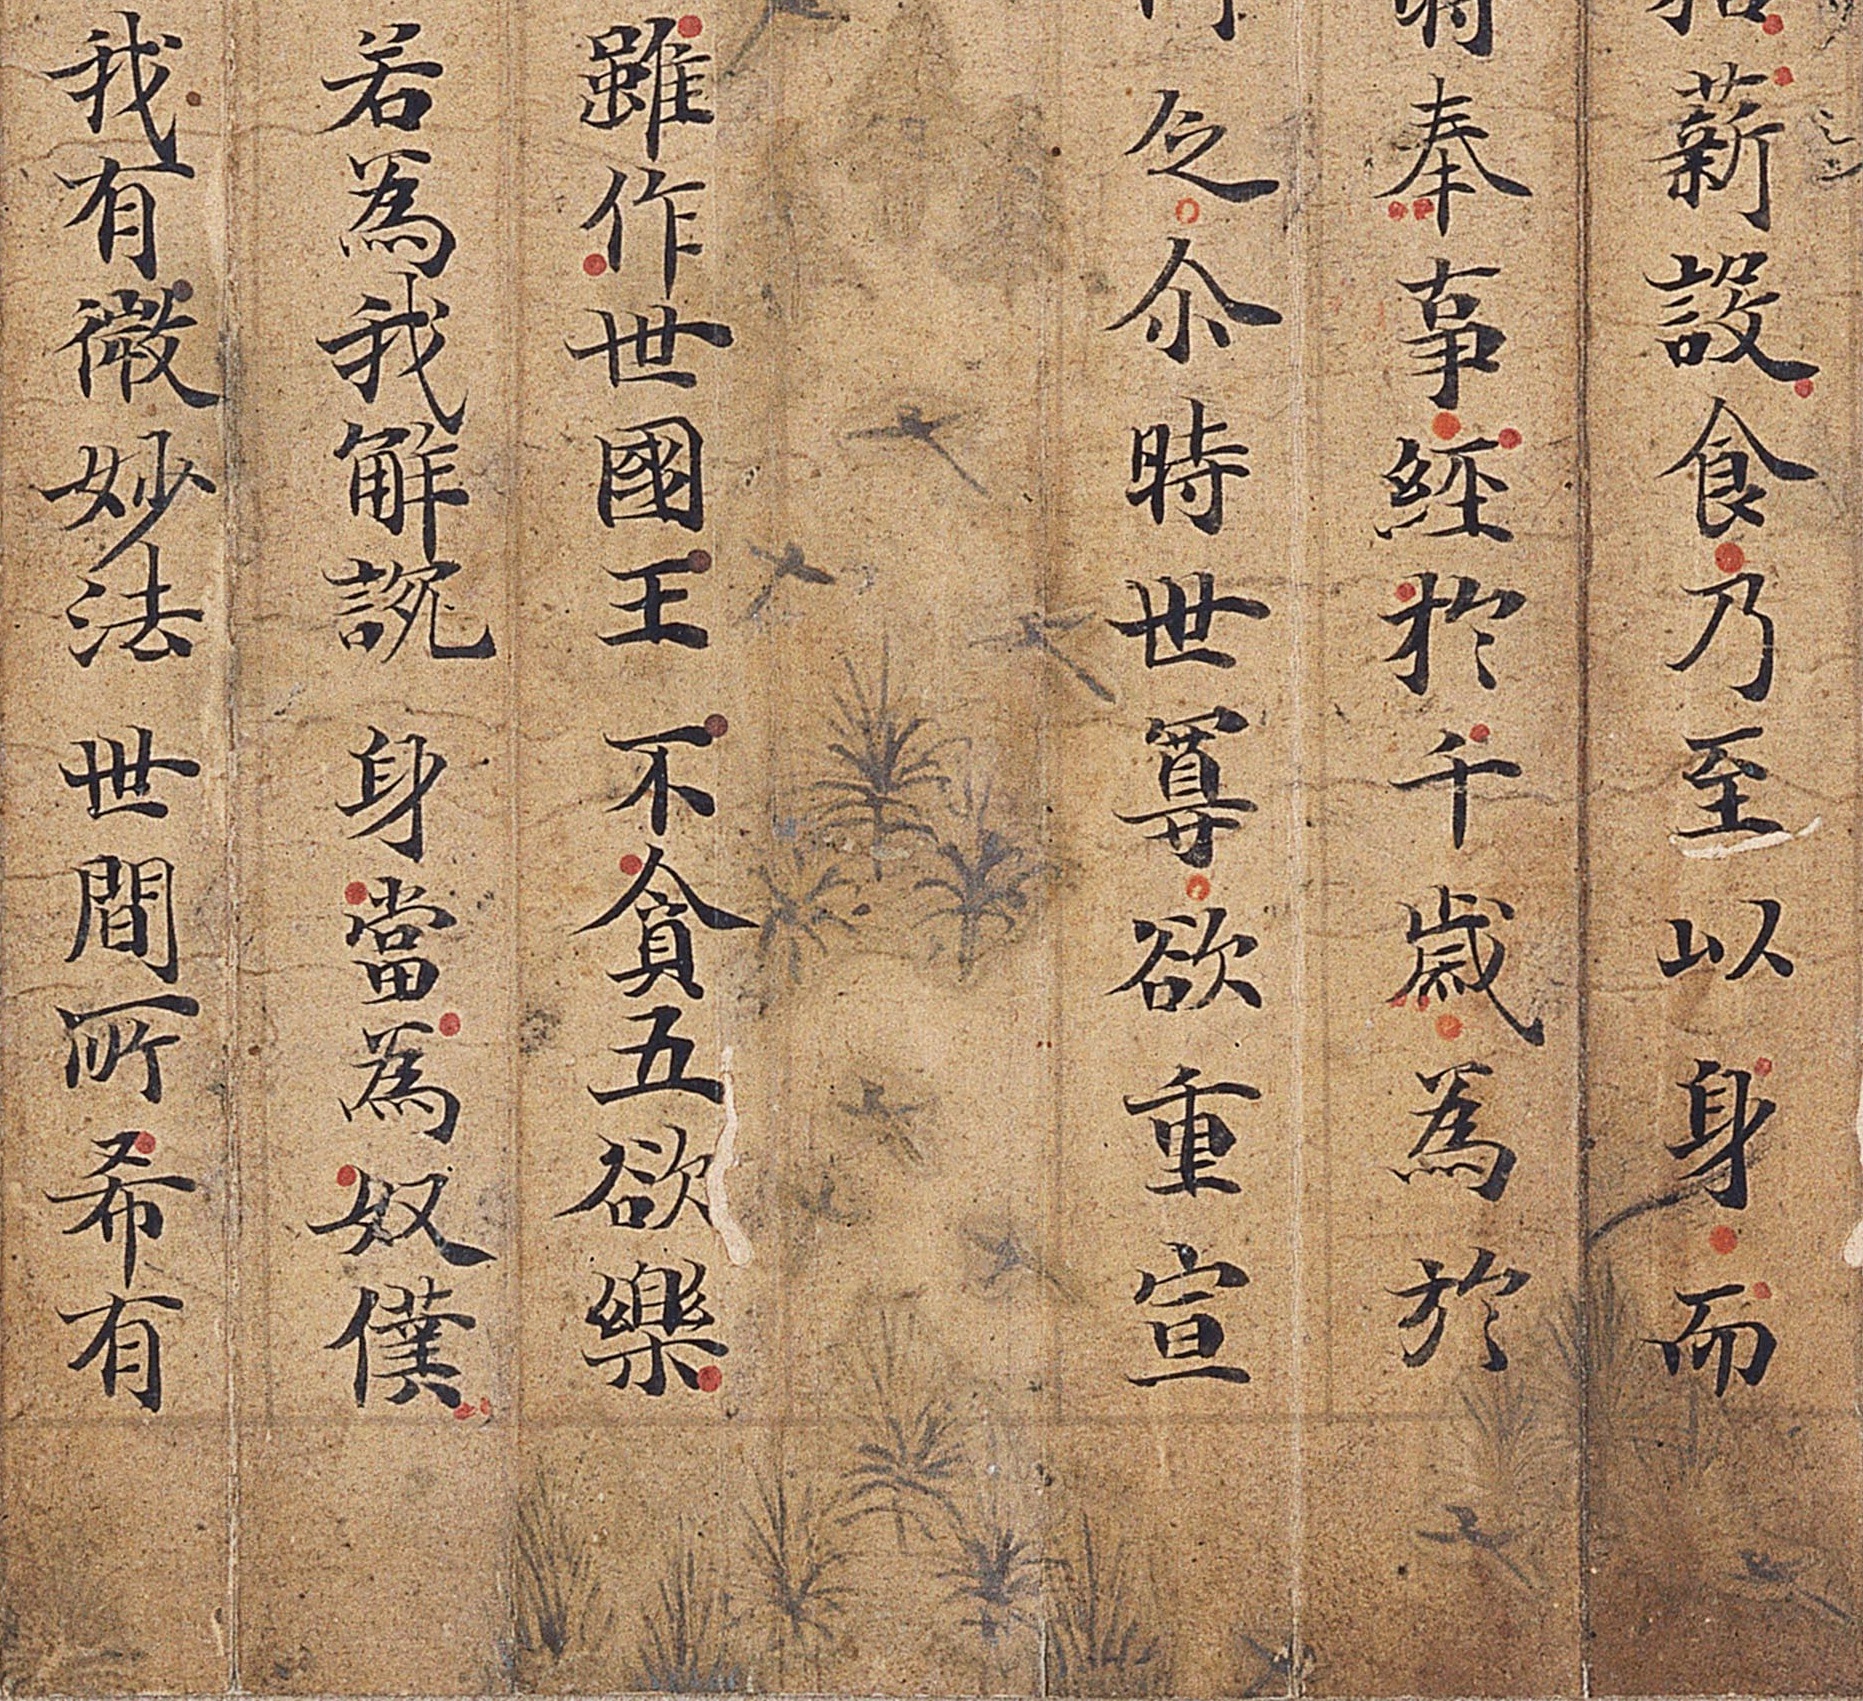 拾薪設食乃至以身而
時奉事經於千歲為於
之尒時世尊欲重宣
雖作世國王 不貪五欲樂
若為我解說 身當為奴僕
我有微妙法 世間所希有